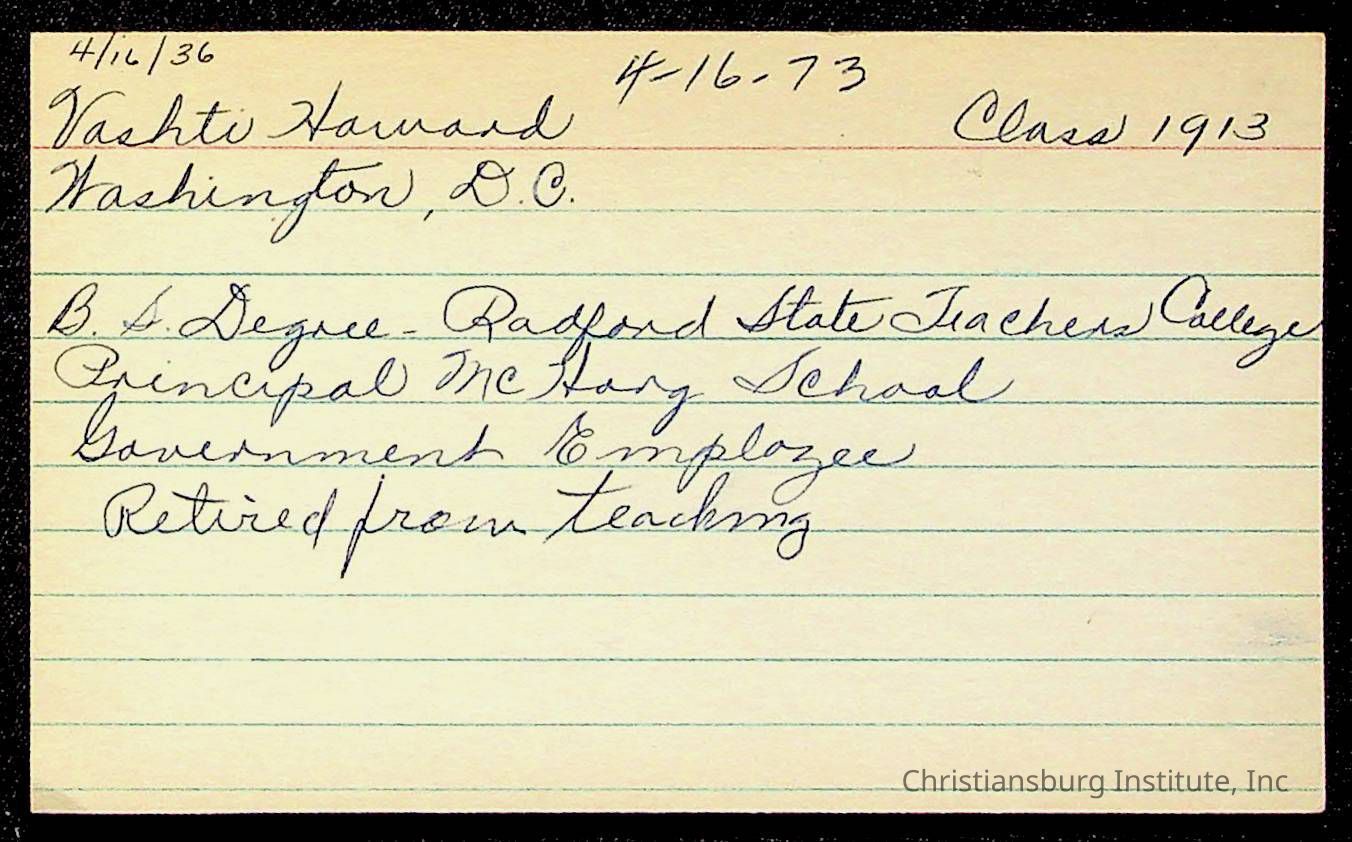 4/16/36
4-16-73
Vashti Howard Class 1913
Washington, D.C.
B. S. Degree - Radford State Teachers College
Principal McHarg School
Government Employee
Retired from teaching
Christiansburg Institute, Inc